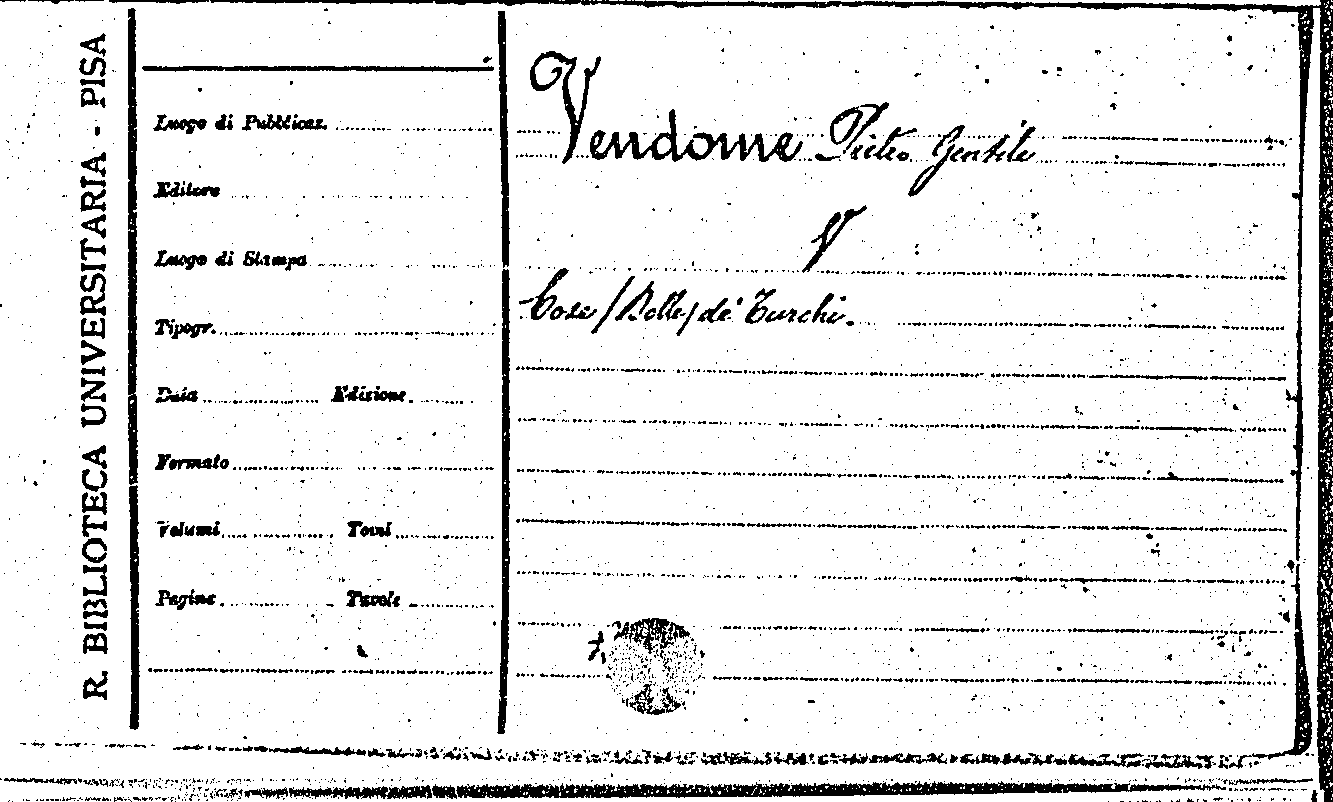 R. BIBLIOTECA UNIVERSITARIA - PISA
Luogo di Pubblicaz.
Editore
Luogo di Stampa
Tipogr.
Data Edizione
Formato
Volumi Tomi
Pagine Tavole
Vendome Pietro Gentile
V
Cose (Delle) de' Turchi.